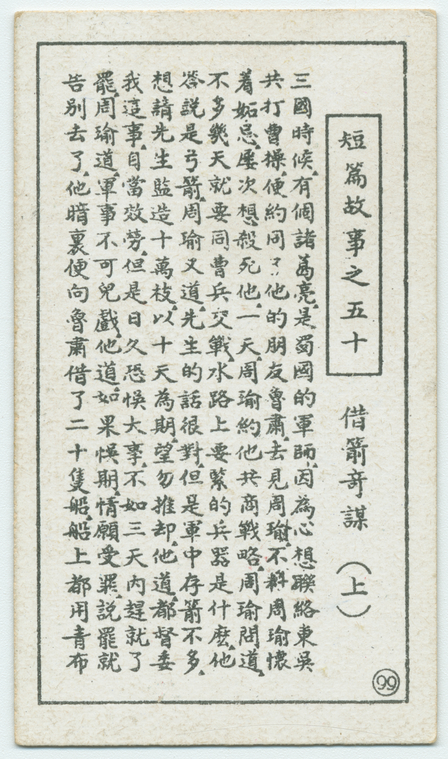 短篇故事之五十
借箭奇謀（上）
三國時候，有個諸葛亮，是蜀國的軍師，因為心想聯絡東吳
共打曹操，便約同了他的朋友魯肅去見周瑜，不料周瑜懷
着妬忌，屢次想殺死他，一天周瑜約他共商戰略，周瑜問道，
不多幾天就要同曹兵交戰，水路上要緊的兵器是什麽，他
答說是弓箭，周瑜又道，先生的話很對，但是軍中存箭不多，
想請先生監造十萬枝，以十天為期，望勿推却，他道，都督委
我這事，自當效勞，但是日久恐悞大事，不如三天內趕就了
罷，周瑜道，軍事不可兒戲，他道，如果悞期，情願受罪，說罷就
告別去了，他暗裏便向魯肅借了二十隻船，船上都用青布
99